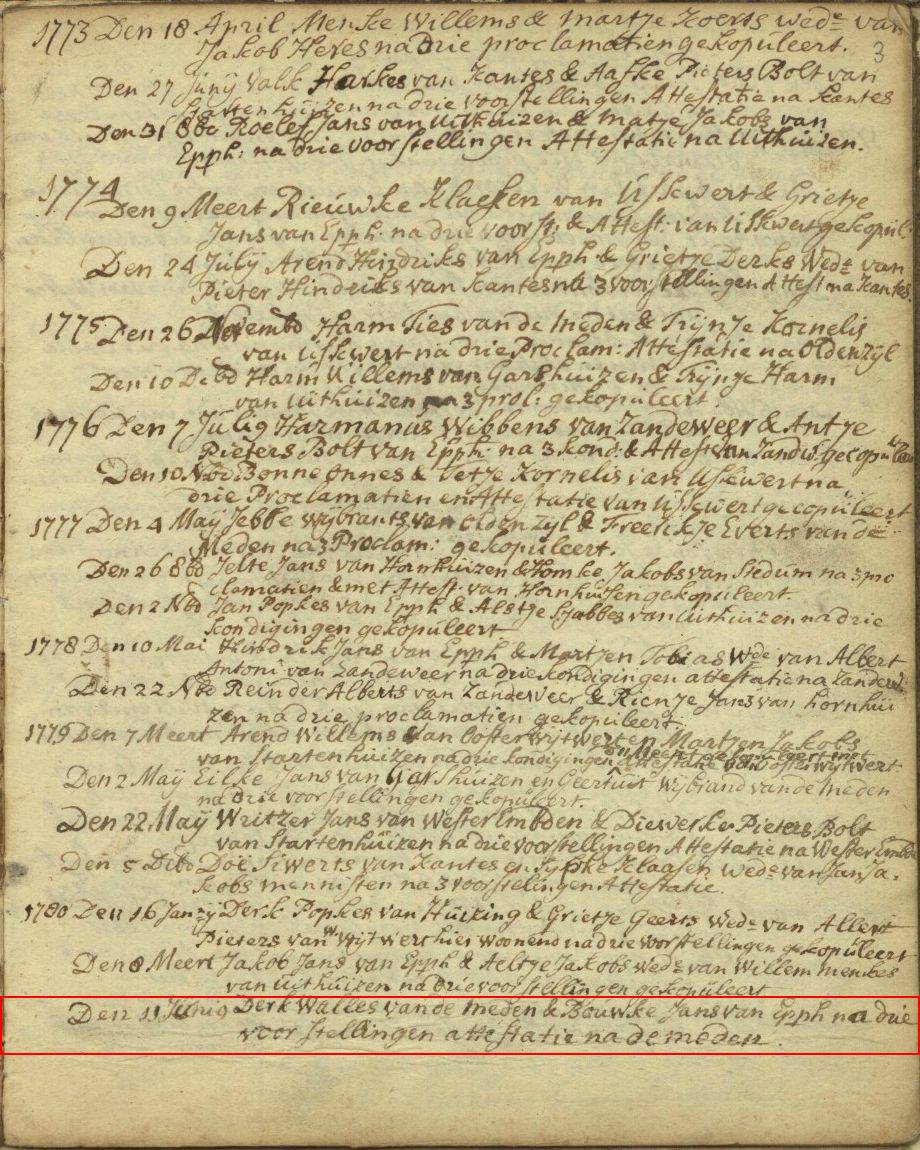 3
1773 Den 18 April Menke Willems & Martje Koerts wede van
Jakob Heres na drie proclamatien gekopuleert.
Den 27 Junij Valk Harkes van Kantes & Aafke Pieters Bolt van
Startenhuizen na drie voorstellingen Attestatie na Kantes
Den 31 8br Roelef Jans van Uithuizen & Matje Jakobs van
Epph: na drie voorstellingen Attestatie na Uithuizen.
1774
Den 9 Meert Rieuwke Klaessen van Usskwert & Grietje
Jans van Epph: na drie voorst: & Attest: van Usskwert gekopul:
Den 24 Julÿ Arend Hindriks van Epph & Grietje Derks Wede van
Pieter Hindriks van Kantes na 3 voorstellingen Attest na Kantes
1775 Den 26 Novembr Harm Ties van de Meden & Trijntje Kornelis
van Usskwert na drie Proclam: Attestatie na Oldenzijl
Den 10 Debr Harm Willems van Garshuizen & Trijntje Harm
van Uithuizen na 3 prol: gekopuleert.
1776 Den 7 Julij Harmanus Wibbens van Zandeweer & Antje
Pieters Bolt van Epph: na 3 kond: & Attest van Zandw: gecopuleert
Den 10 Nbr Bonne Onnes & Vetje Kornelis van Usskwert na
drie Proclamatien en Attestatie van Usskwert gecopuleert
1777 Den 4 Maij Jebbe Wijbrants van Oldenzijl & Freerkje Everts van de
Meden na 3 Proclam: gekopuleert.
Den 26 8br Jelte Jans van Hornhuizen & Homke Jakobs van Stedum na 3 pro
clamatien & met Attest: van Hornhuisen gekopuleert.
Den 2 Nbr Jan Popkes van Epph & Alstje Sjabbes van Uithuizen na drie
kondigingen gekopuleert
1778 Den 10 Mai Hindrik Jans van Epph & Martjen Tobias Wde van Albert
Antoni van Zandeweer na drie kondigingen attestatie na Zandew:
Den 22 Nbr Reinder Alberts van Zandeweer & Rientje Jans van hornhui
zen na drie proclamatien gekopuleert.
1779 Den 7 Meert Arend Willems van Oosterwijtwert en Martjen Jakobs
van Startenhuizen na drie kondigingen Attestatie van Oosterwijtwert
Den 2 Maÿ Eilke Jans van Garshuizen en Geertruit Wijbrand van de Meden
na drie voorstellingen gekopuleert.
Den 22 Maÿ Writzer Jans van Wester Embden & Diewerke Pieters Bolt
van Startenhuizen na drie voorstellingen Attestatie na Wester Embd
Den 5 Dibr Doe Siwerts van Kantes en Klaasen wede van Jan Ja-
kobs mennisten na 3 voorstelingen Attestatie.
1780 Den 16 Janrij Derk Popkes van Huizing & Grietje Geerts wede van Allert
Pieters van W: Wijtwerc hier woonend na drie voorstellingen gekopuleert
Den 8 Meert Jakob Jans van Epph & Aeltje Jakobs wede van Willem Menkes
van Uithuizen na drie voorstellingen gekopuleert
Den 11 Junig Derk Walles van de Meden & Bouwke Jans van Epph na drie
voorstellingen attestatie na de meden.